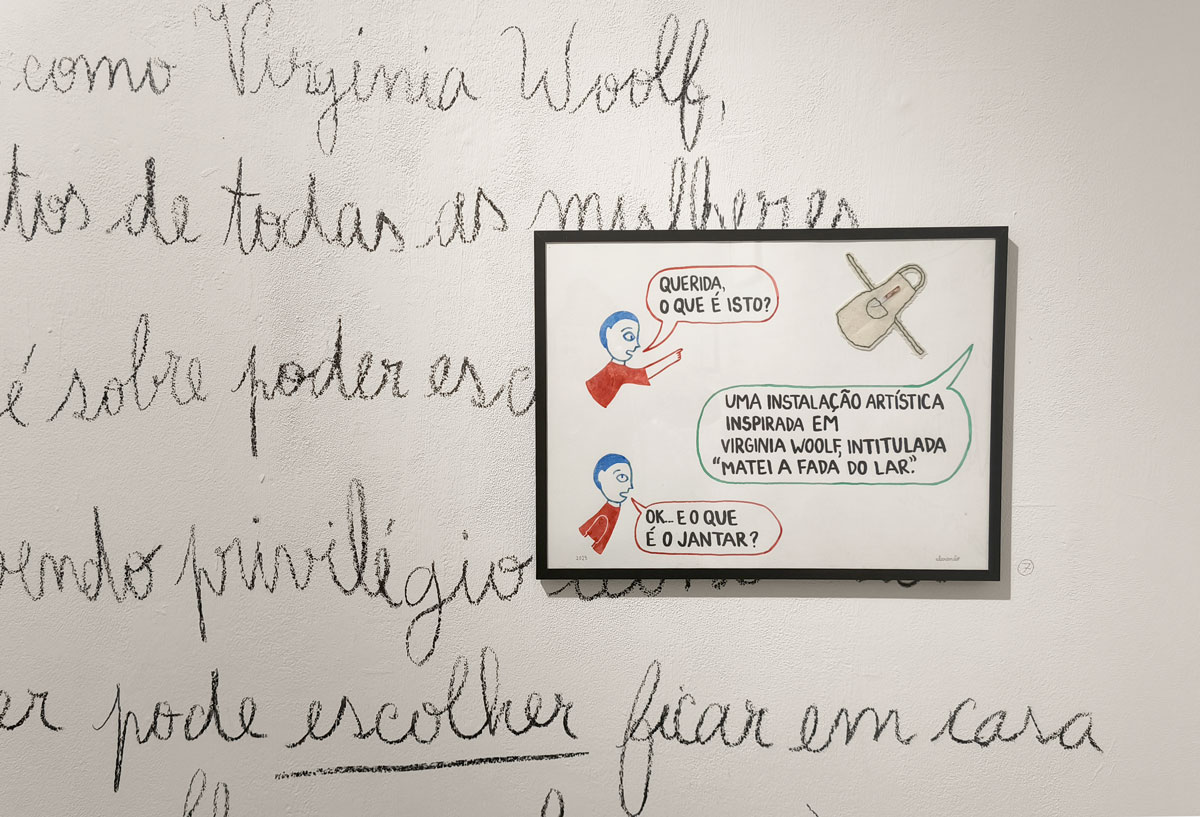 como Virginia Woolf,
de todas as mulheres
é sobre poder
privilégio
pode escolher ficar em casa
QUERIDA,
O QUE É ISTO?
UMA INSTALAÇÃO ARTÍSTICA
INSPIRADA EM
VIRGINIA WOOLF, INTITULADA
"MATEI A FADA DO LAR".
OK... E O QUE
É O JANTAR?
2025
7